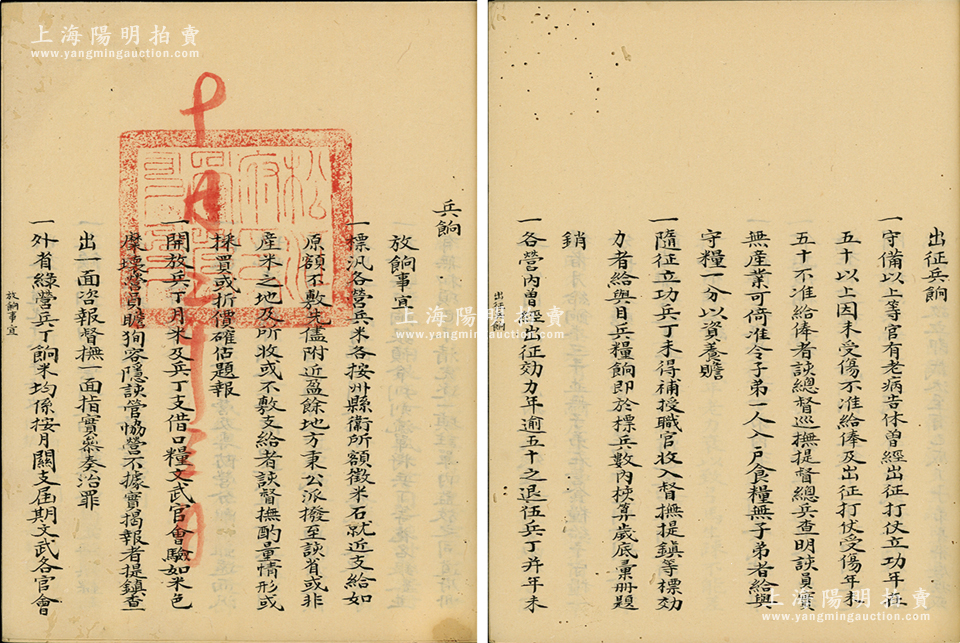 上海陽明拍賣
www.yangmingauction.com
上海陽明拍賣
www.yangmingauction.com
出征兵餉
一守備以上等官有老病告休曾經出征打仗立功年在
五十以上因未受傷不准給俸及出征打仗受傷年未
五十不准給俸者該總督巡撫提督總兵查明該員實
無產業可倚准令子弟一人入戶食糧無子弟者給與
守糧一分以資養贍
一隨征立功兵丁未得補授職官收入督撫提鎮等標効
力者給與目兵糧餉即於標兵數內核算歲底彙冊題
銷
一各營內曾經出征効力年逾五十之退伍兵丁并年未
出征兵餉
兵餉
放餉事宜
一標汛各營兵米各按州縣衛所額徵米石就近支給如
原額不敷先儘附近盈餘地方秉公派撥至該省或非
產米之地及所收或不敷支給者該督撫酌量情形或
採買或折價確估題報
一開放兵丁月米及兵丁支借口糧文武官會驗如米色
糜壞營員瞻狥容隱該管協營不據實揭報者提鎮查
出一面咨報督撫一面指實叅奏治罪
一外省綠營兵丁餉米均係按月關支屆期文武各官會
放餉事宜
上海陽明拍賣
www.yangmingauction.com